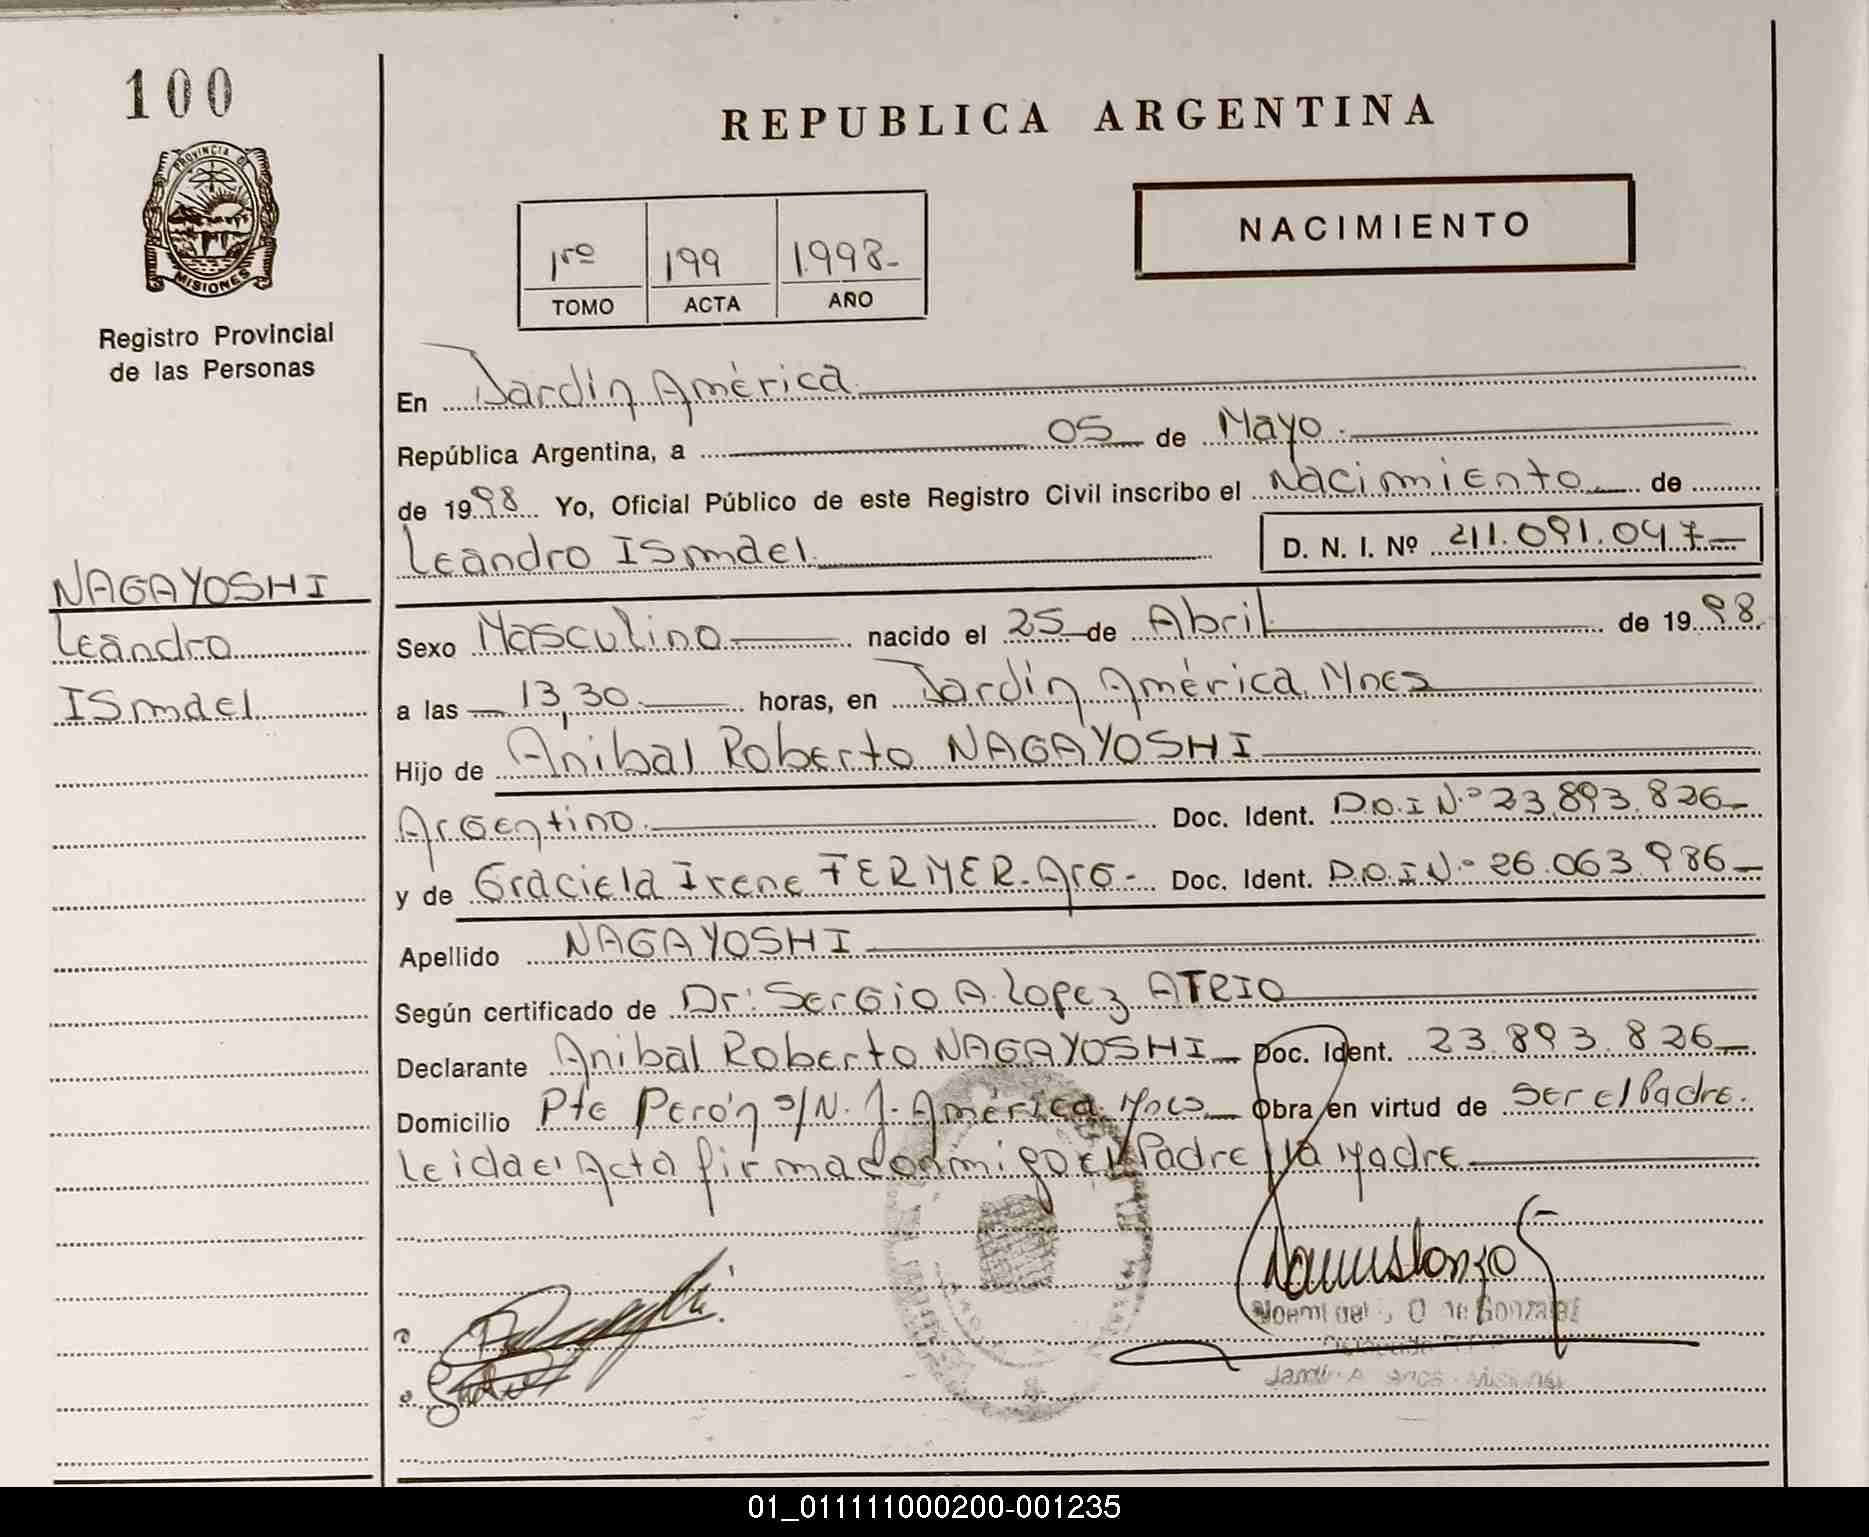 100
PROVINCIA DE
MISIONES
Registro Provincial
de las Personas
NAGAYOSHI
Leandro
Ismael
REPUBLICA ARGENTINA
NACIMIENTO
1ro 199 1.998-
TOMO ACTA AÑO
En Jardín América
República Argentina, a 05 de Mayo.
de 1998 Yo, Oficial Público de este Registro Civil inscribo el Nacimiento de
Leandro Ismael. D. N. I. Nº 41.091.047-
Sexo Masculino nacido el 25 de Abril de 1998
a las 13,30 horas, en Jardín América, Mnes
Hijo de Anibal Roberto NAGAYOSHI
Argentino. Doc. Ident. D.N.I Nº 23.893.826-
y de Graciela Irene FERMER-Arg- Doc. Ident. D.N.I Nº 26.063.986-
Apellido NAGAYOSHI
Según certificado de Dr: Sergio A. Lopez ATRIO
Declarante Anibal Roberto NAGAYOSHI Doc. Ident. 23.893.826-
Domicilio Pte Perón s/N. J. América, Mnes Obra en virtud de ser el Padre.
Leida el Acta firma conmigo el Padre y la Madre
Noemi del
de Gonzalez
01_011111000200-001235